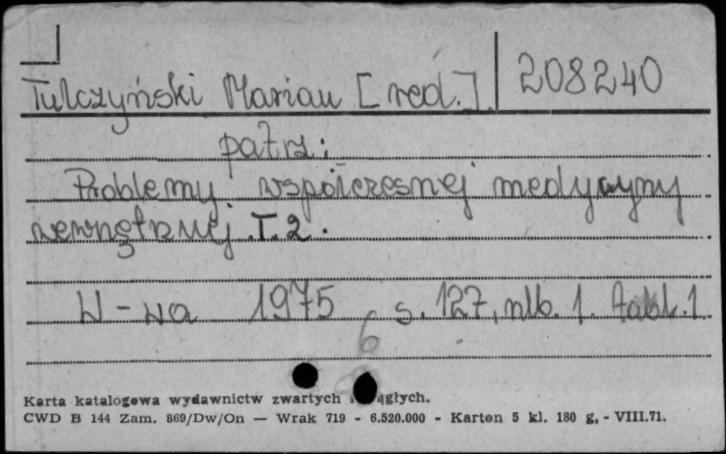 Tulczyński Marian [red.] 208240
patrz:
Problemy współczesnej medycyny
wewnętrznej. T. 2.
W-wa 1975 s. 127, nlb. 1. tabl. 1
6
Karta katalogowa wydawnictw zwartych i ciągłych.
CWD B 144 Zam. 869/Dw/On — Wrak 719 - 6.520.000 - Karton 5 kl. 180 g, - VIII.71.